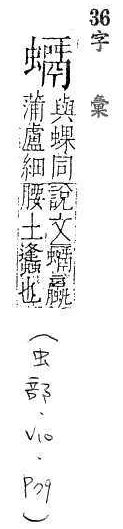 36
字彙
與蜾同說文蠃
蒲盧細腰土蠭也
(虫部·V10·P79)